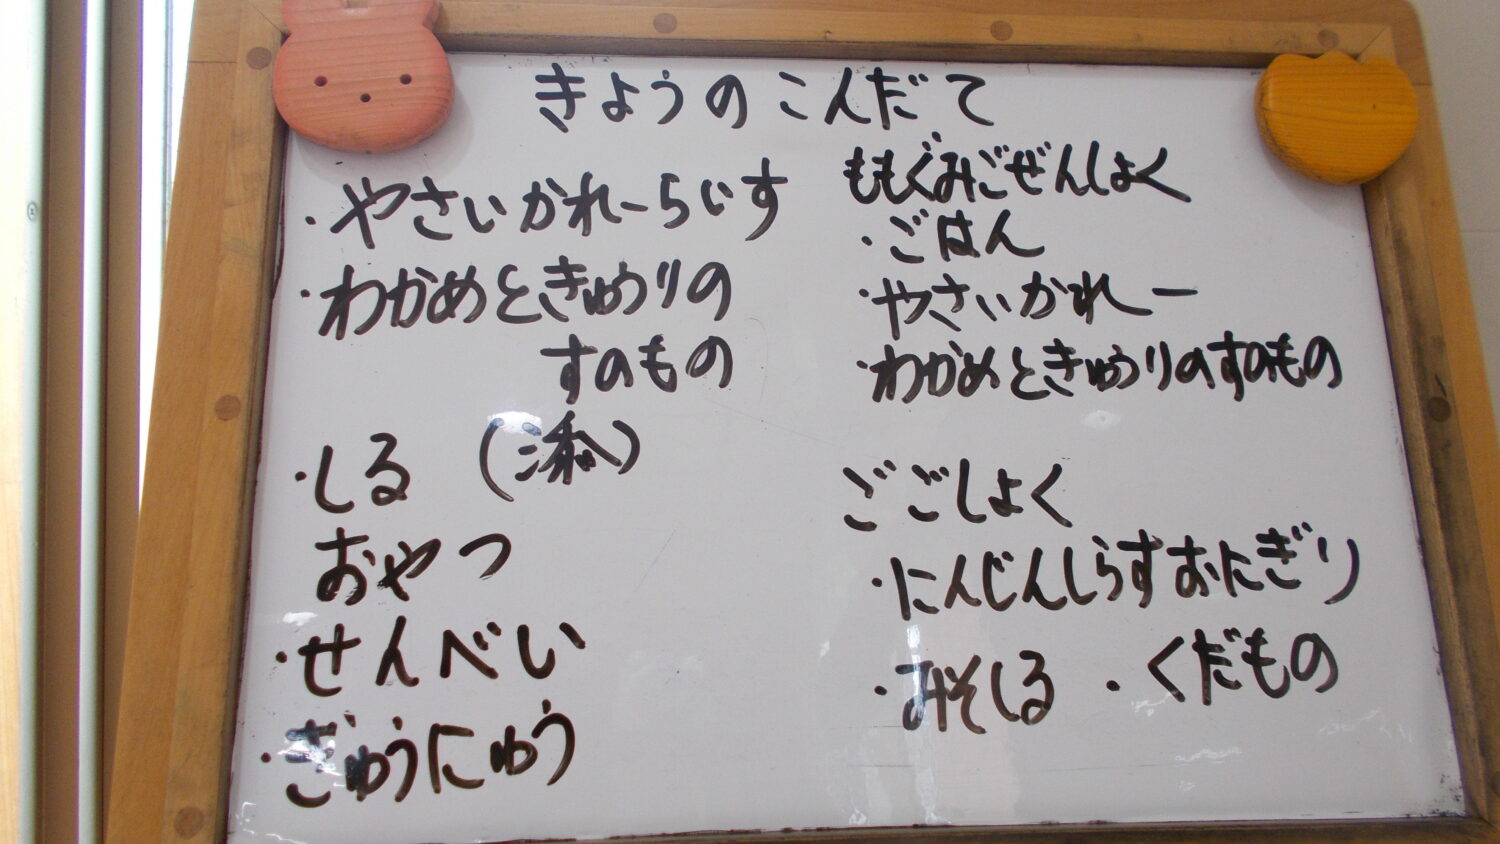 きょうのこんだて
・やさいかれーらいす
・わかめときゅうりの
すのもの
・しる
おやつ
・せんべい
・ぎゅうにゅう
ももぐみごぜんしょく
・ごはん
・やさいかれー
・わかめときゅうりのすのもの
ごごしょく
・にんじんしらすおにぎり
・みそしる ・くだもの